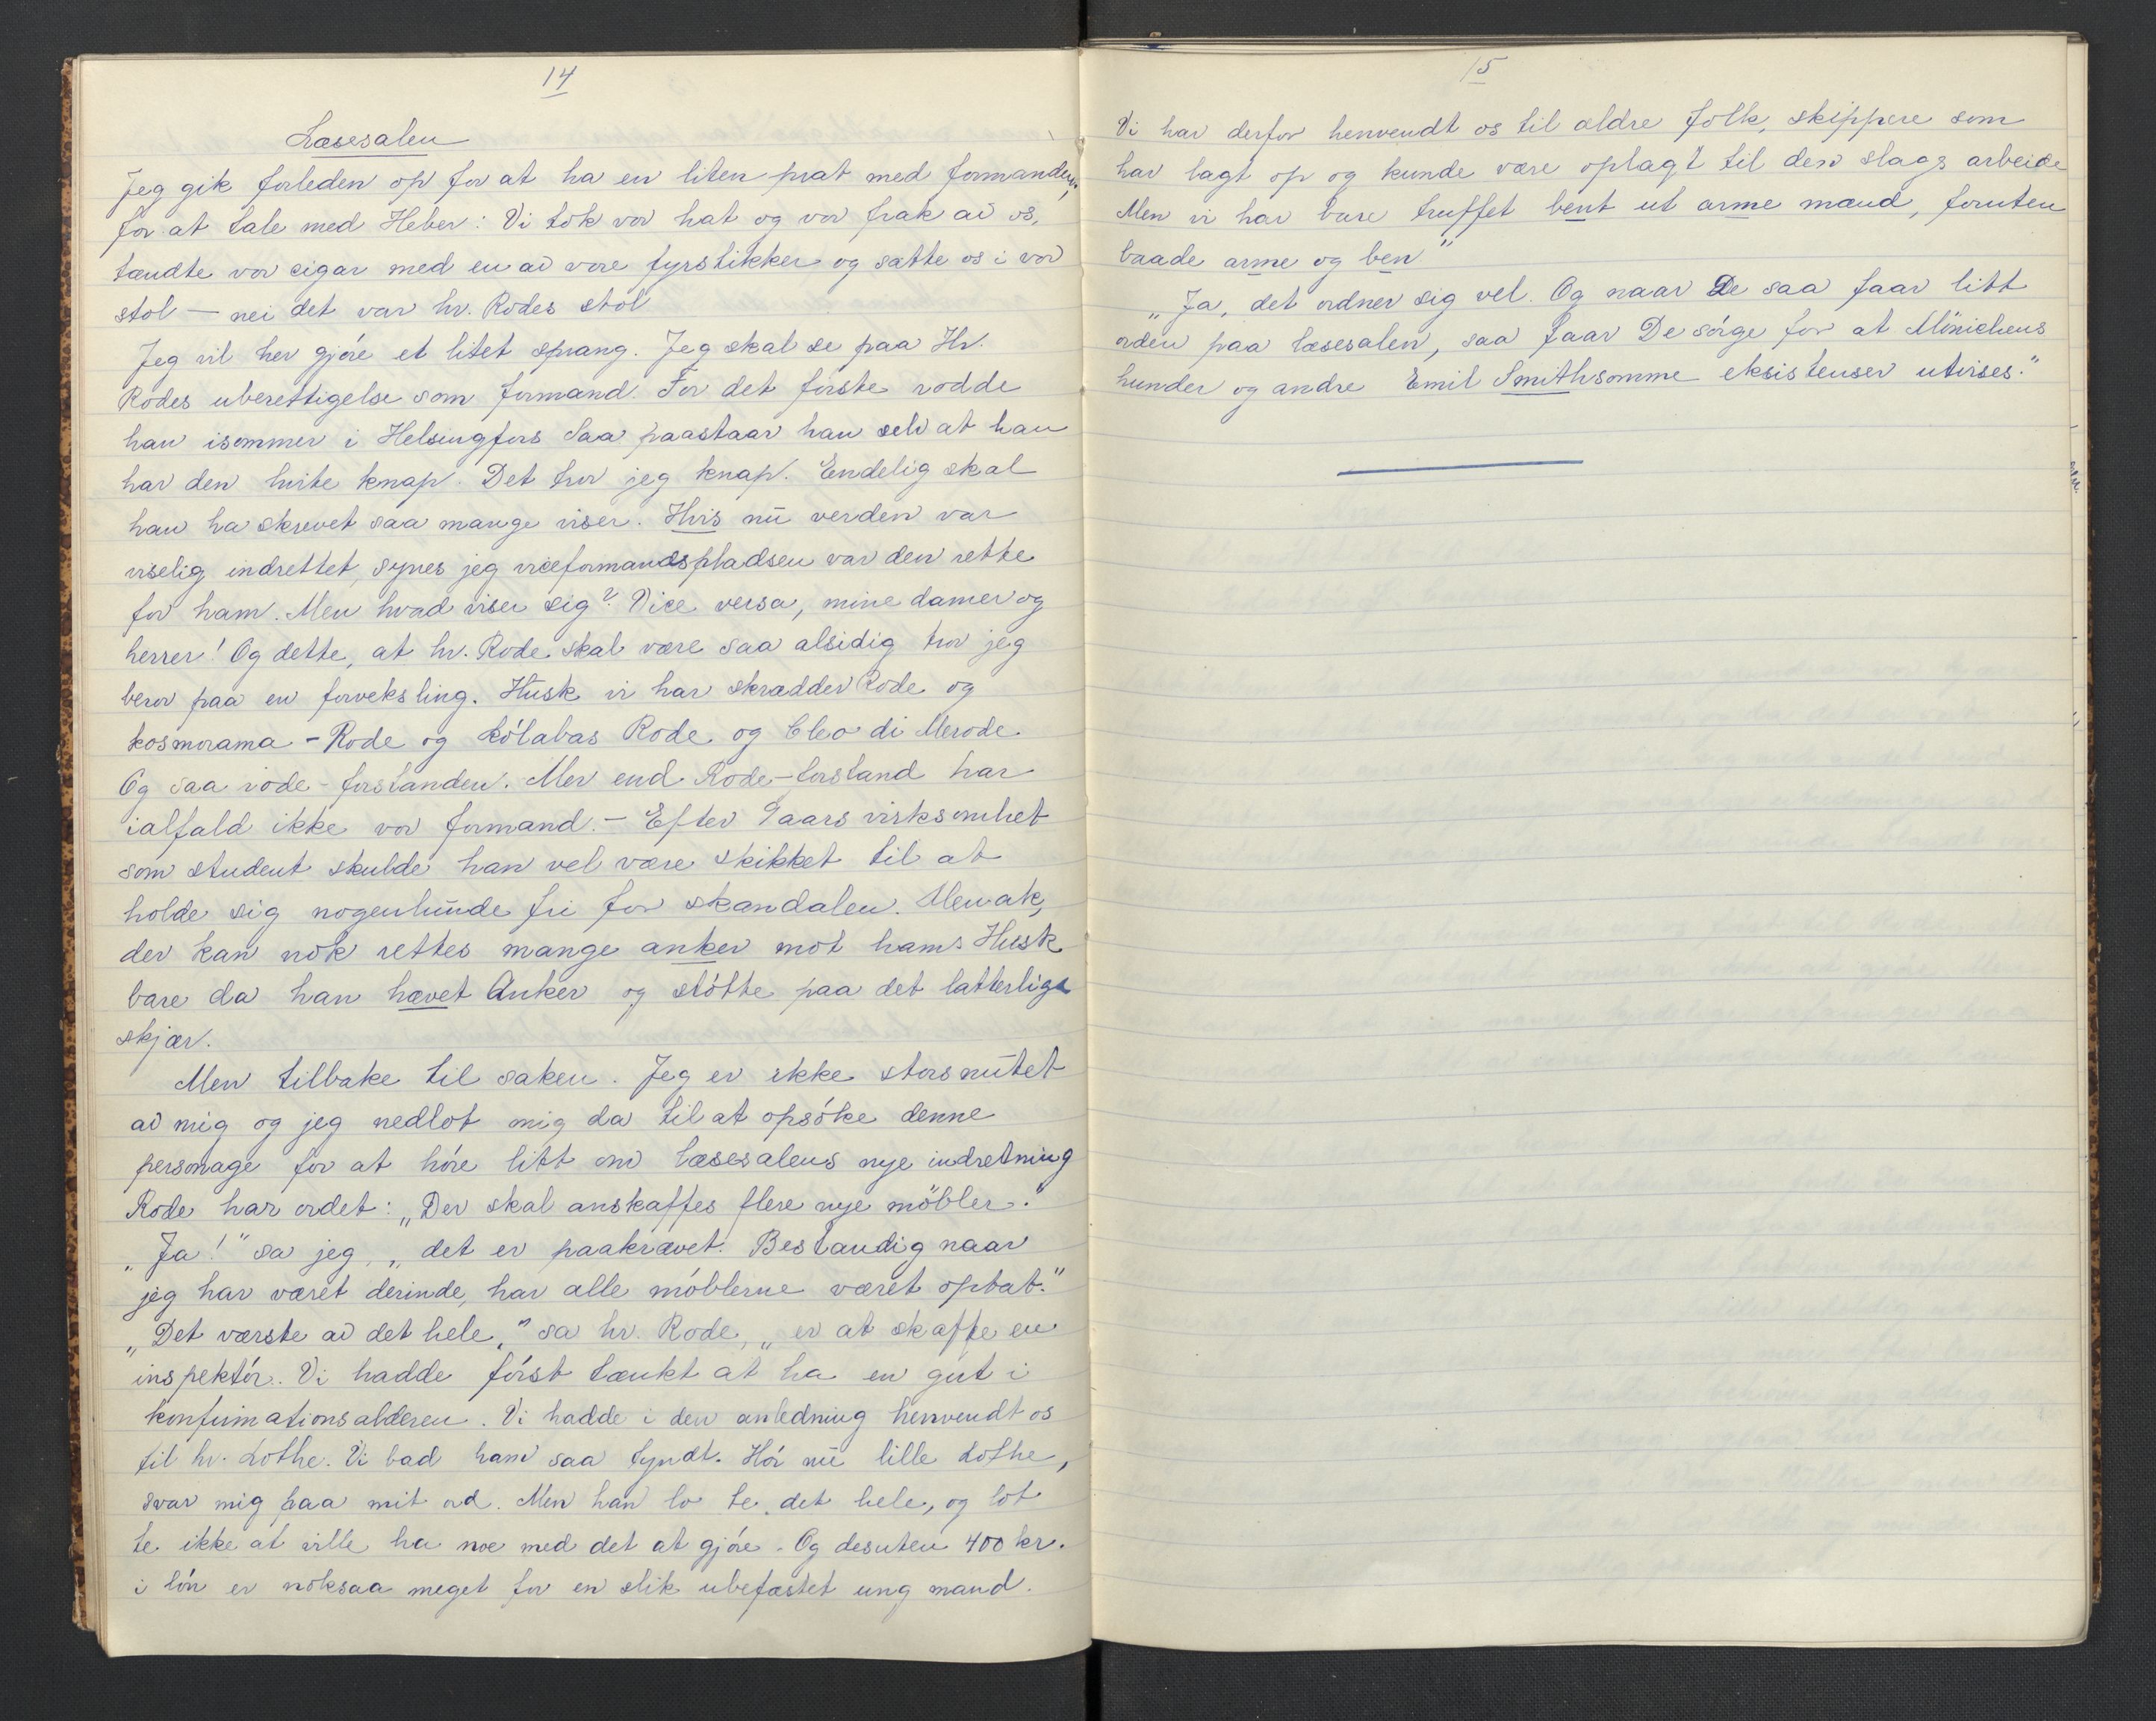 14
Læsesalen
Jeg gik forleden op for at ha en liten prat med formanden,
for at tale med Heber: Vi tok vor hat og vor frak av os,
tændte vor cigar med en av vore fyrstikker og satte os i vor
stol — nei det var hr. Rodes stol
Jeg vil her gjøre et litet sprang. Jeg skal se paa Hr.
Rodes uberettigelse som formand. For det første rodde
han isommer i Helsingfors Saa paastaar han selv at han
har den hvite knap. Det tror jeg knap. Endelig skal
han ha skrevet saa mange viser. Hvis nu verden var
viselig indrettet, synes jeg viceformandspladsen var den rette
for ham. Men hvad viser sig? Vice versa, mine damer og
herrer! Og dette, at hr. Rode skal være saa alsidig tror jeg
beror paa en forveksling. Husk vi har skrædder Rode og
kosmorama - Rode og Kólabas Rode og Cleo di Merode
Og saa rode-forstanden. Mer end Rode-forstand har
ialfald ikke vor formand. — Efter 9 aars virksomhet
som student skulde han vel være skikket til at
holde sig nogenlunde fri for skandalen. Men ak,
der kan nok rettes mange anker mot ham. Husk
bare da han hævet Anker og støtte paa det latterlige
skjær.
Men tilbake til saken. Jeg er ikke storsnutet
av mig og jeg nedlot mig da til at opsøke denne
personage for at høre litt om læsesalens nye indretning
Rode har ordet: „Der skal anskaffes flere nye möbler."
„Ja!" sa jeg, „det er paakrævet. Bestandig naar
jeg har været derinde, har alle möblerne været optat."
„Det værste av det hele," sa hr. Rode, „er at skaffe en
inspektør. Vi hadde først tænkt at ha en gut i
konfirmationsalderen. Vi hadde i den anledning henvendt os
til hr. Lothe. Vi bad ham saa tyndt. Hör nu lille Lothe,
svar mig paa mit ord. Men han lo te det hele, og lot
te ikke at ville ha noe med det at gjøre. Og desuten 400 kr.
i løn er noksaa meget for en slik ubefæstet ung mand.
15
Vi har derfor henvendt os til ældre folk, skippere som
har lagt op og kunde være oplagt til den slags arbeide
Men vi har bare truffet bent ut arme mænd, foruten
baade arme og ben"
„Ja, det ordner sig vel. Og naar De saa faar litt
orden paa læsesalen, saa faar De sørge for at Mönichens
hunder og andre Emil Smithsomme eksistenser utvises."